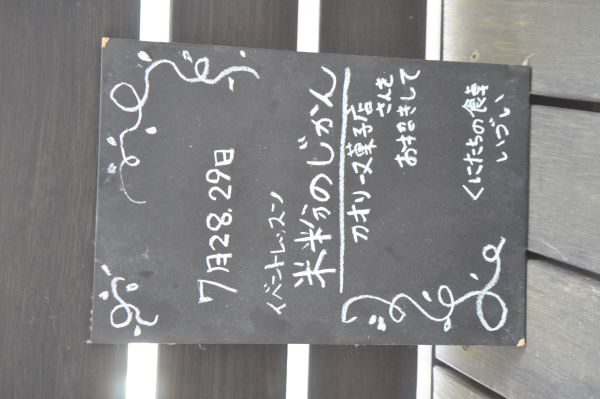 7月28.29日
イベントレッスン
米粉のじかん
カオリーヌ菓子店
さんを
お招きして
くにたちの食卓
いづい